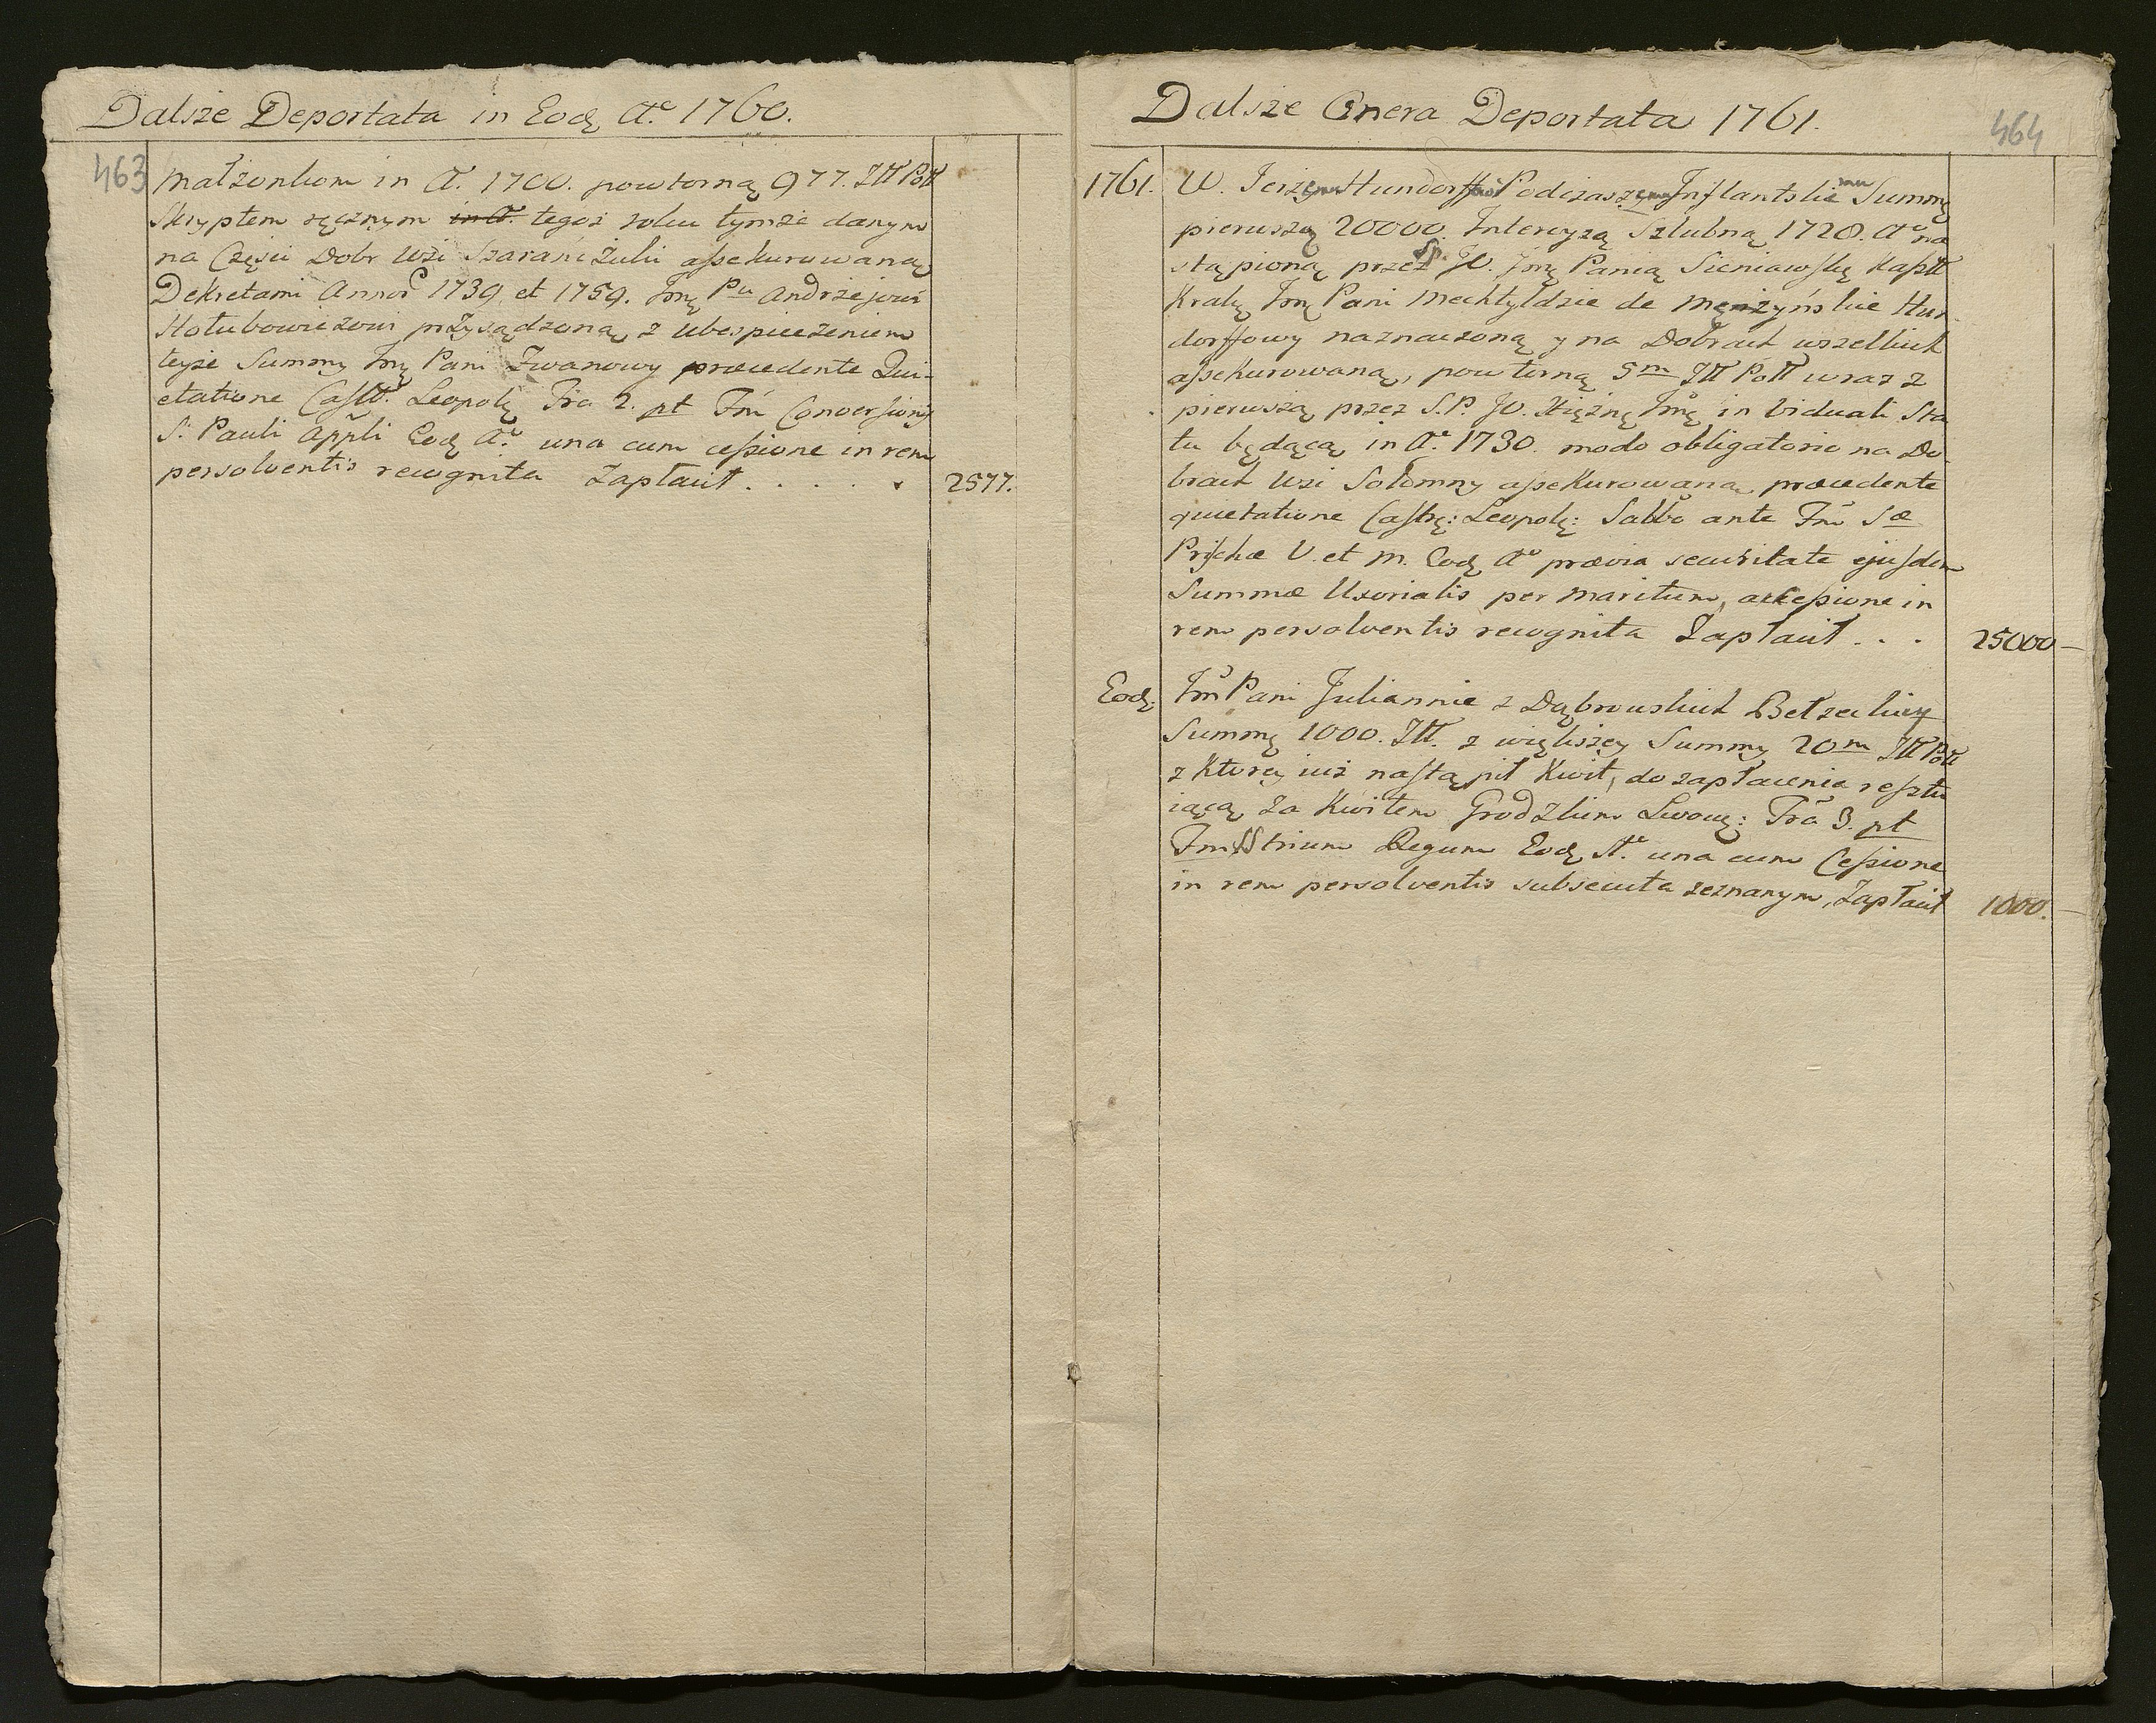 Dalsze Deportata in Eodę Aº. 1760.
463
Małżonkom in A. 1700. powtorną 977. Złł Poll
Skryptem ręcznym in A. tegoż roku tymże danym
na Części Dobr Wsi Szarańczuki assekurowaną
Dekretami Annor 1739 et 1759. Imę Pu Andrzejowi
Hołubowiczowi przysądzoną z ubespieczeniem
teyże Summy Imę Pani Iwanowy præcedente Qui-
etatione Castr. Leopolę Fra 2. pt Fm Conversionis
S. Pauli Appli Eodę Aº. una cum cessione in rem
persolventis recognita Zapłacił . . . . .
2577.
Dalsze Onera Deportata 1761.
464
1761. W. Jerzemu Hundorffowi Podczaszemu Inflantskiemu Summę
pierwszą 20000. Intercyzą Szlubną 1728. Aº na
stąpioną przez Śp. JO. Imę Panią Sieniawską Kaszt
Krakę Imę Pani Mechtyldzie de Mężyńskie Hun
dorffowy naznaczoną y na Dobrach wszelkich
assekurowaną, powtorną 5m Złł Poll wraz z
pierwszą przez S.P. JO. Xiężnę Imę in viduali Sta
tu będącą in Aº. 1730. modo obligatorio na Do-
brach Wsi Sołomny assekurowaną præcedente
quietatione Castrę: Leopolę: Sabbo ante Fm Sæ
Prischæ V. et M. Eodę Aº prævia securitate ejusdem
Summæ Uxorialis per maritum, ac cessione in
rem persolventis recognita Zapłacił . . .
25000 -
Eodę. Im Pani Juliannie z Dąbrowskich Bełzeckiey
Summę 1000. Złł. z większey Summy 20m Złł Poll
z ktorey iuż nastąpił Kwit, do zapłacenia resztu
iącą za Kwitem Grodzkim Lwowę: Fra 3. pt
Fm SS trium Regum Eodę Aº. una cum Cessione
in rem persolventis subsecuta zeznanym, Zapłacił
1000. -